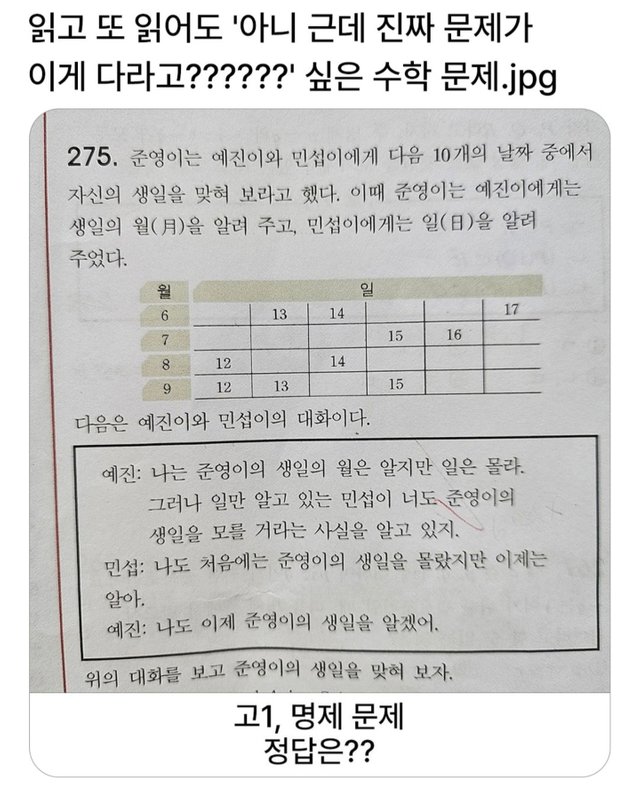 읽고 또 읽어도 '아니 근데 진짜 문제가
이게 다라고??????' 싶은 수학 문제.jpg
275. 준영이는 예진이와 민섭이에게 다음 10개의 날짜 중에서
자신의 생일을 맞혀 보라고 했다. 이때 준영이는 예진이에게는
생일의 월(月)을 알려 주고, 민섭이에게는 일(日)을 알려
주었다.
월 일
6 13 14 17
7 15 16
8 12 14
9 12 13 15
다음은 예진이와 민섭이의 대화이다.
예진: 나는 준영이의 생일의 월은 알지만 일은 몰라.
그러나 일만 알고 있는 민섭이 너도 준영이의
생일을 모를 거라는 사실을 알고 있지.
민섭: 나도 처음에는 준영이의 생일을 몰랐지만 이제는
알아.
예진: 나도 이제 준영이의 생일을 알겠어.
위의 대화를 보고 준영이의 생일을 맞혀 보자.
고1, 명제 문제
정답은??